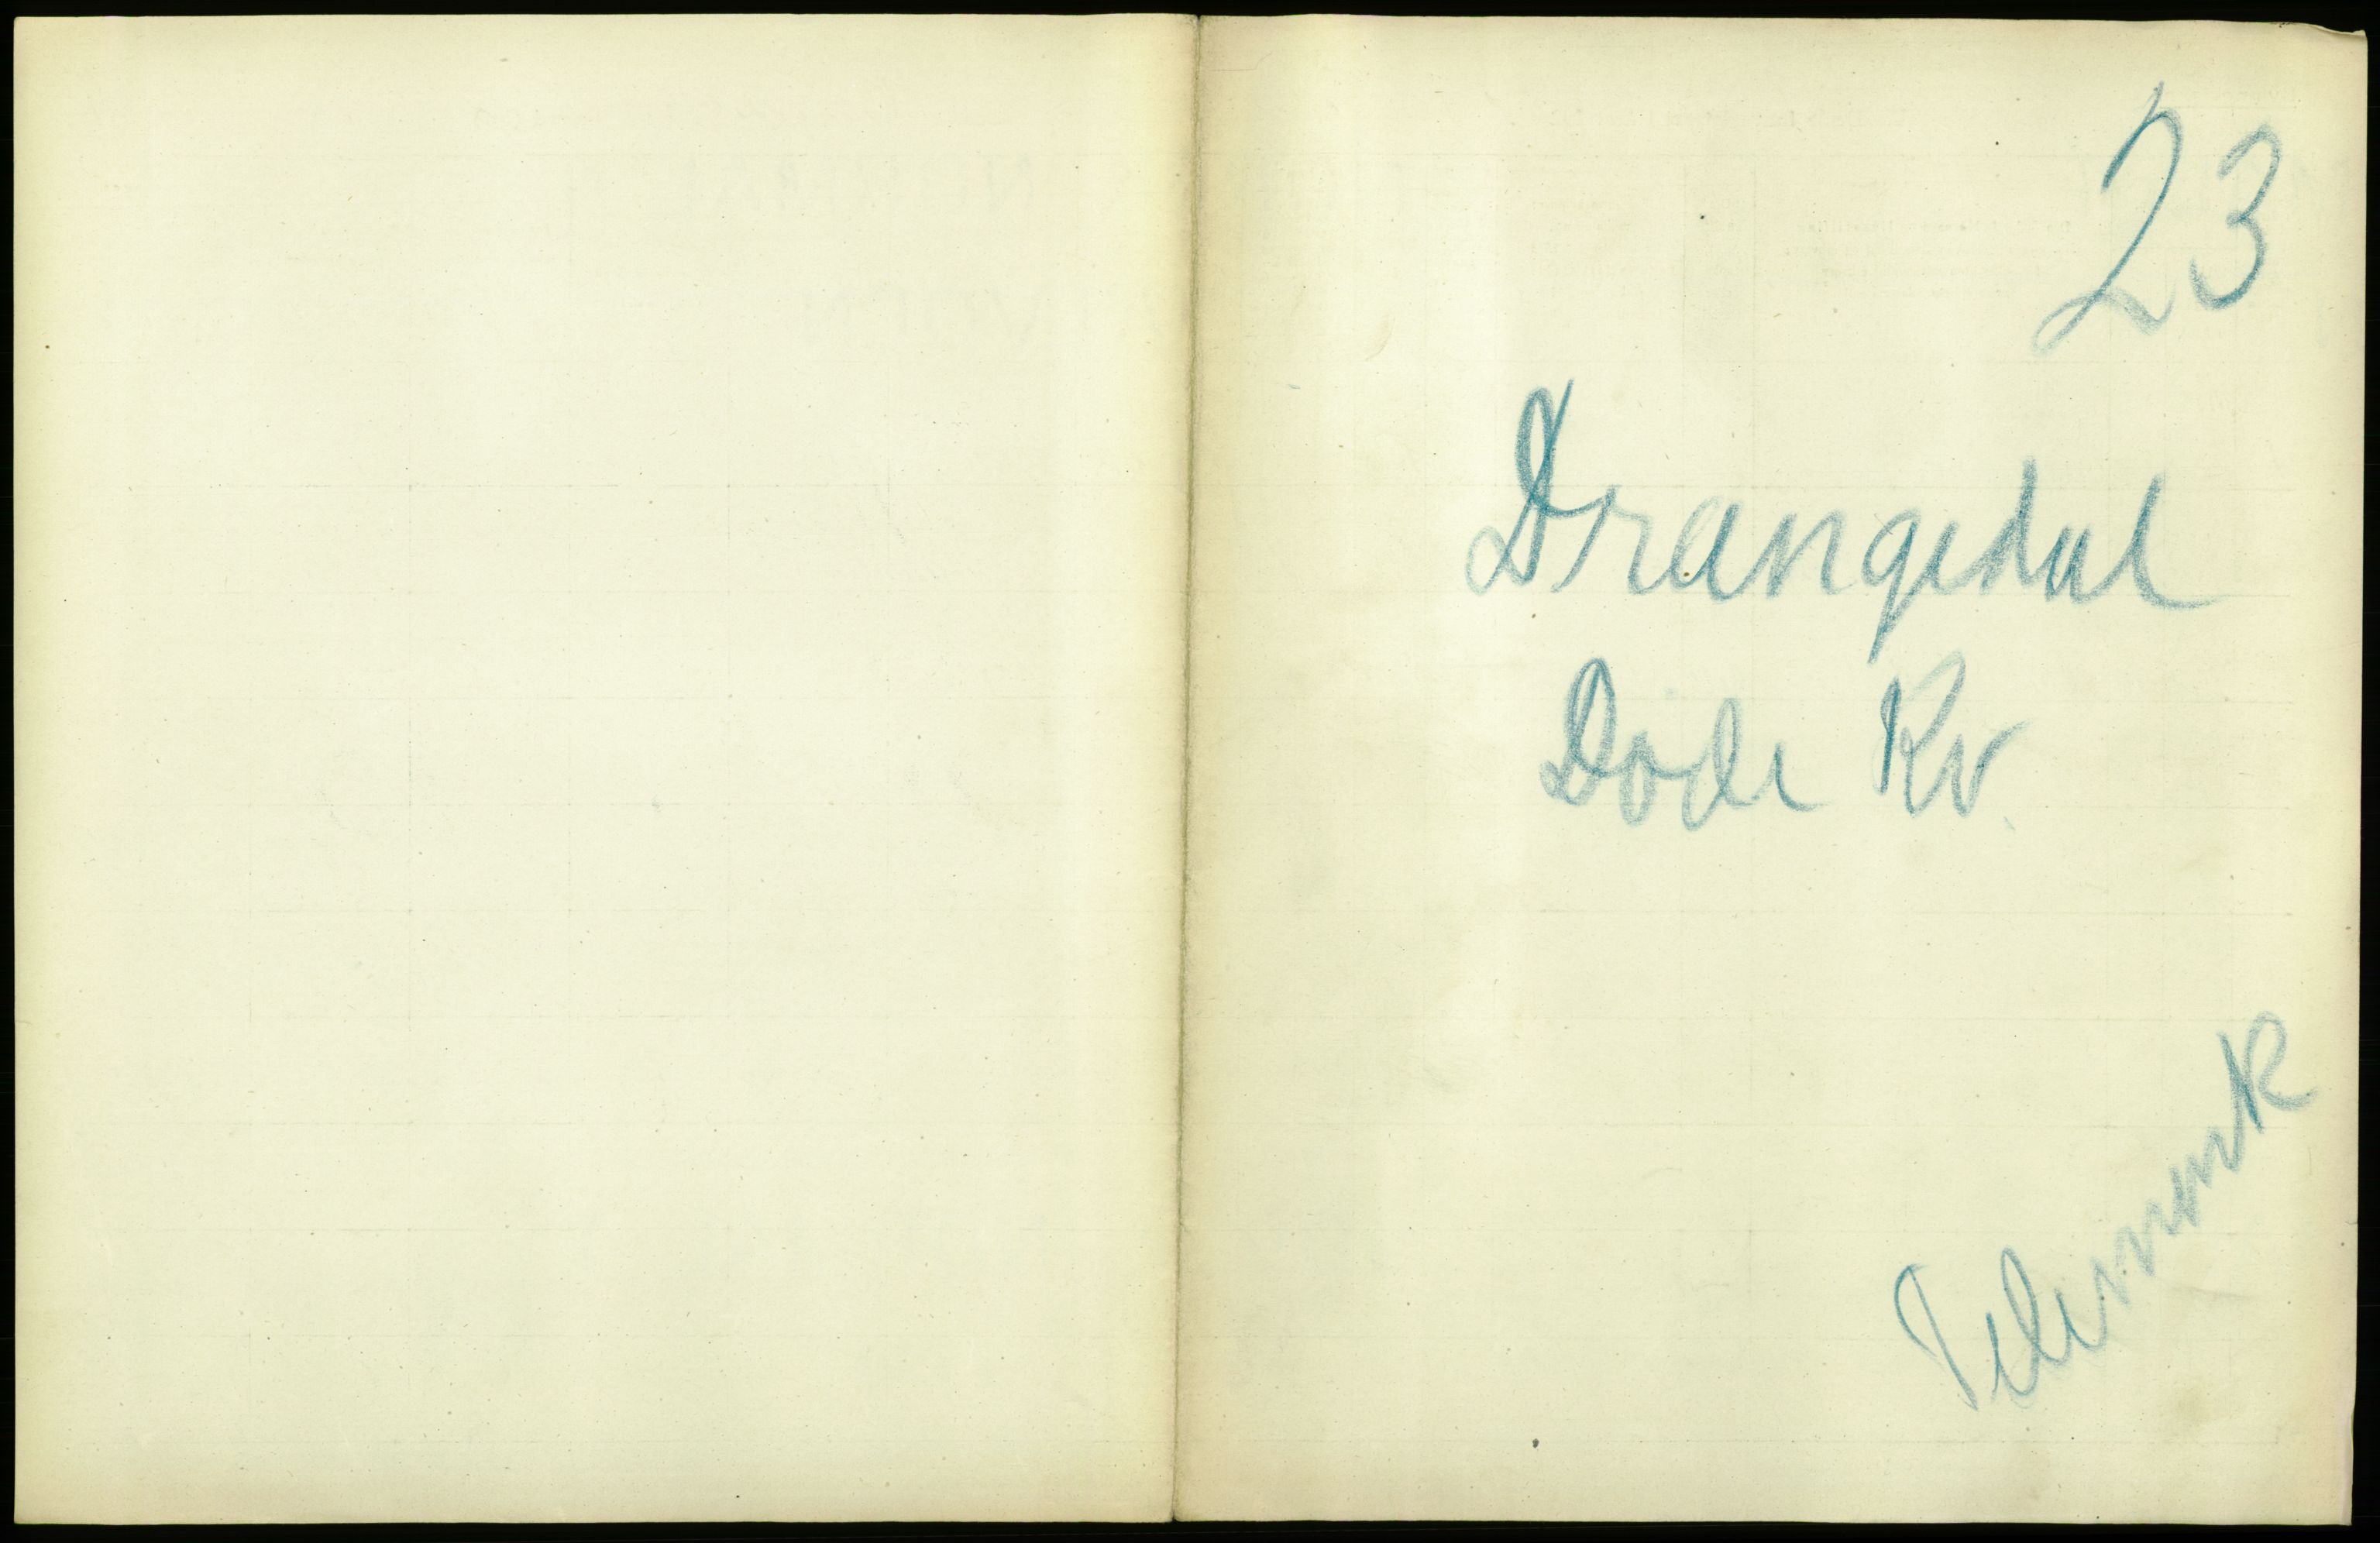 23
Drangedal
Døde Kv.
Telemark